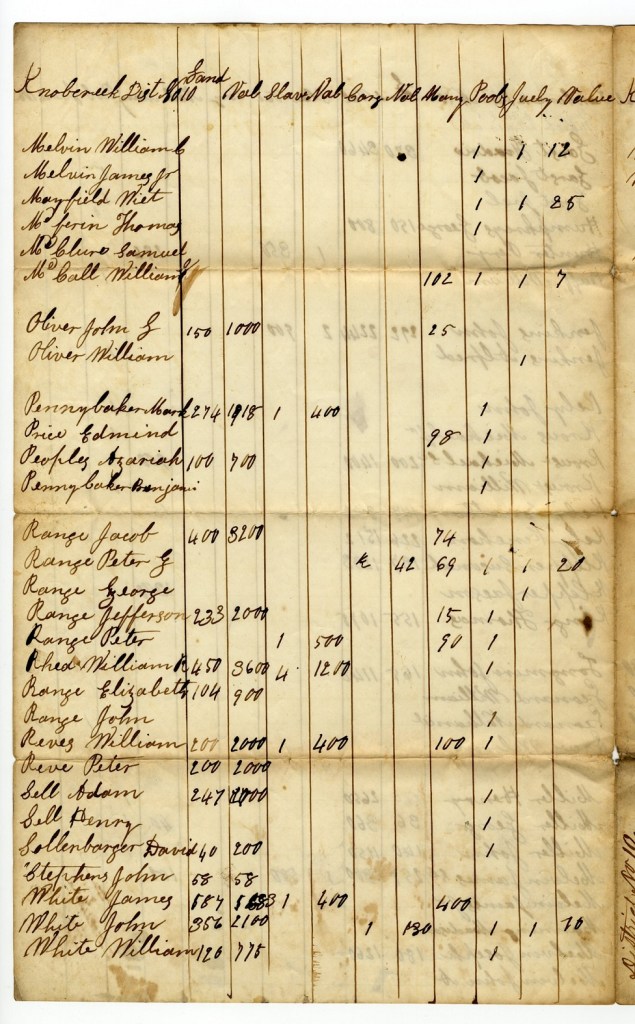 Land
Knobcreek Dist No 10 Val Slave Val Carg Val Mony Pools Juely Value
Melvin William C 1 1 12
Melvin James Jr 1
Mayfield Wiet 1 1 25
Mc ferin Thomas 1
Mc Clure Samuel
Mc Call William 102 1 1 7
Oliver John G 150 1000 25
Oliver William 1
Pennybaker Mark 274 1918 1 400 1
Price Edmind 98 1
Peoples Azariah 100 700 1
Pennybaker Benjami 1
Range Jacob 400 3200 74
Range Peter G 42 69 1 1 20
Range George
Range Jefferson 233 2000 15 1
Range Peter 1 500 90 1
Rhed William R 450 3600 4 1200 1
Range Elizabeth 104 900
Range John 1
Reves William 200 2000 1 400 100 1
Reve Peter 200 2000
Sell Adam 247 1
Sell Henry 1
Sollenbarger David 40 200 1
Stephens John 58 58
White James 1 400 400
White John 356 2100 1 130 1 1 70
White William 120 775
District No 10